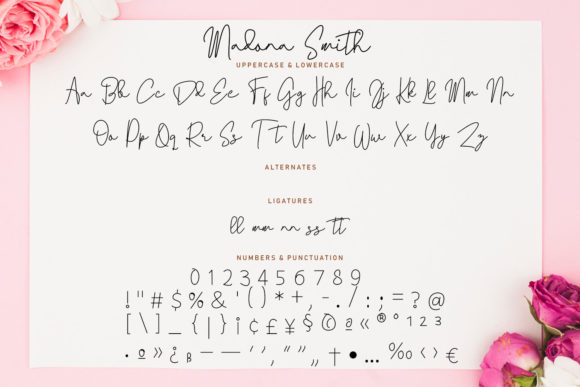 Madona Smith
UPPERCASE & LOWERCASE
Aa Bb Cc Dd Ee Ff Gg Hh Ii Jj Kk Ll Mm Nn
Oo Pp Qq Rr Ss Tt Uu Vv Ww Xx Yy Zz
ALTERNATES
LIGATURES
ll mm nn ss tt
NUMBERS & PUNCTUATION
0 1 2 3 4 5 6 7 8 9
! " # $ % & ' ( ) * + , - . / : ; = ? @
[ \ ] _ { | } ¡ ¢ £ ¥ § © ª « ® ° 1 2 3
· º » ¿ – — ‘ ’ , “ ” „ † • … ‰ ‹ › €